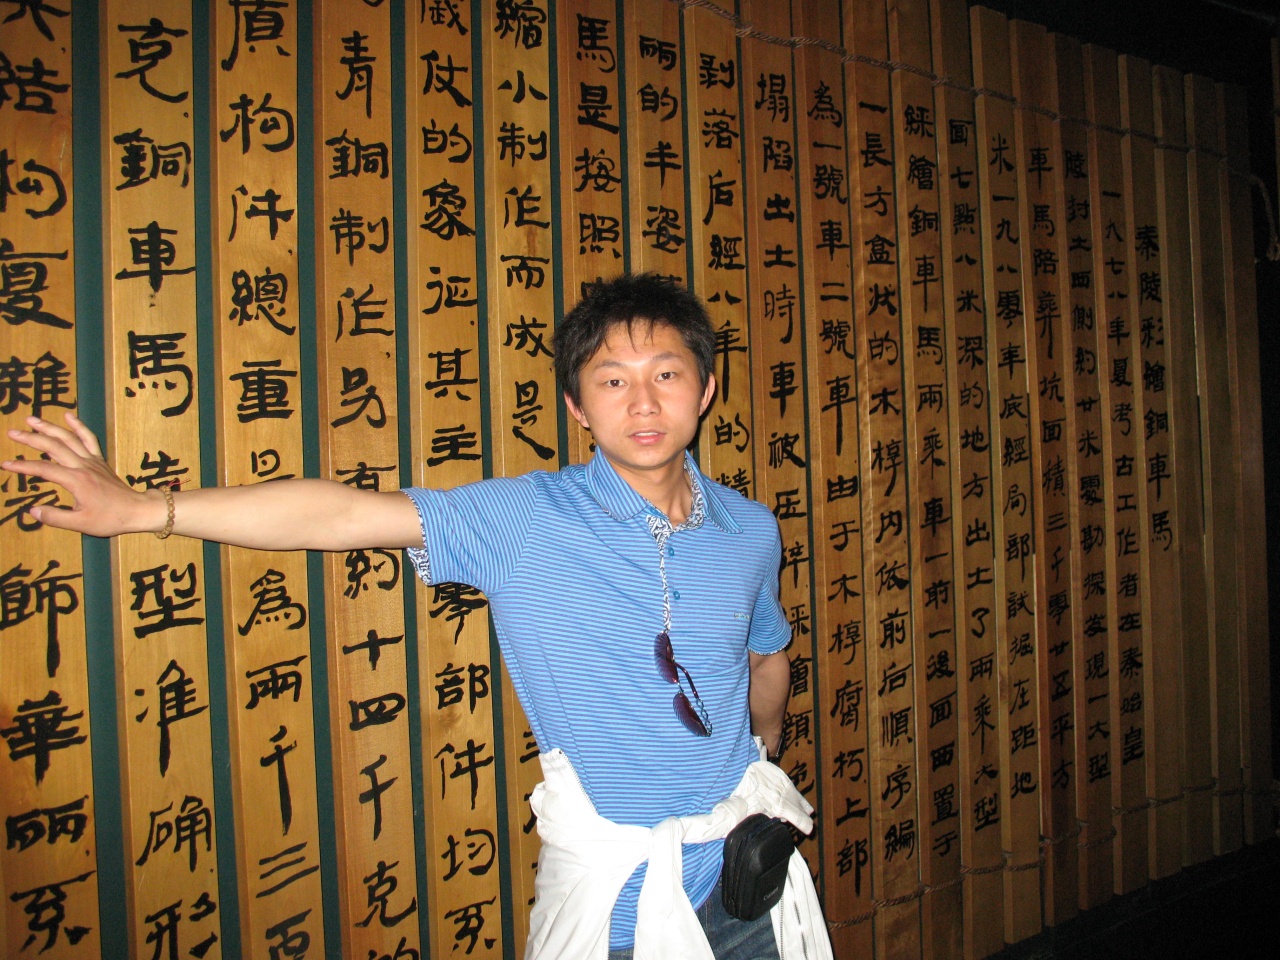 秦陵彩繪銅車馬
一九七八年夏考古工作者在秦始皇
陵封土西側約廿米處勘探发現一大型
車馬陪葬坑面積三千零廿五平方
米一九八零年底經局部試掘在距地
面七點八米深的地方出土了兩乘大型
綵繪銅車馬兩乘車一前一後面西置于
一長方盒狀的木椁内依前后順序編
為一號車二號車由于木椁腐朽上部
塌陷出土時車被压碎綵繪顏色
剥落后經八年的精
丽的丰姿
馬是按照
縮小制作而成是
仗的象征其主零部件均系
青銅制作另有約十四千克的
頂构件總重量為兩千三百
克銅車馬造型准确形
結构复雜装飾華丽系